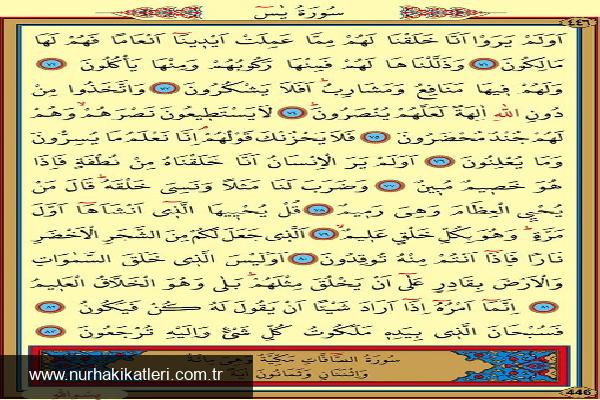 سُورَةُ يٰسٓ
٤٤٦
اَوَلَمْ يَرَوْا اَنَّا خَلَقْنَا لَهُمْ مِمَّا عَمِلَتْ اَيْد۪ينَٓا اَنْعَامًا فَهُمْ لَهَا
مَالِكُونَ ﴿٧١﴾ وَذَلَّلْنَاهَا لَهُمْ فَمِنْهَا رَكُوبُهُمْ وَمِنْهَا يَأْكُلُونَ ﴿٧٢﴾
وَلَهُمْ ف۪يهَا مَنَافِعُ وَمَشَارِبُۜ اَفَلَا يَشْكُرُونَ ﴿٧٣﴾ وَاتَّخَذُوا مِنْ
دُونِ اللّٰهِ اٰلِهَةً لَعَلَّهُمْ يُنْصَرُونَۜ ﴿٧٤﴾ لَا يَسْتَط۪يعُونَ نَصْرَهُمْۙ وَهُمْ
لَهُمْ جُنْدٌ مُحْضَرُونَ ﴿٧٥﴾ فَلَا يَحْزُنْكَ قَوْلُهُمْۢ اِنَّا نَعْلَمُ مَا يُسِرُّونَ
وَمَا يُعْلِنُونَ ﴿٧٦﴾ اَوَلَمْ يَرَ الْاِنْسَانُ اَنَّا خَلَقْنَاهُ مِنْ نُطْفَةٍ فَاِذَا
هُوَ خَص۪يمٌ مُب۪ينٌ ﴿٧٧﴾ وَضَرَبَ لَنَا مَثَلًا وَنَسِيَ خَلْقَهُۜ قَالَ مَنْ
يُحْيِ الْعِظَامَ وَهِيَ رَم۪يمٌ ﴿٧٨﴾ قُلْ يُحْي۪يهَا الَّذ۪ٓي اَنْشَاَهَٓا اَوَّلَ
مَرَّةٍۜ وَهُوَ بِكُلِّ خَلْقٍ عَل۪يمٌۙ ﴿٧٩﴾ اَلَّذ۪ي جَعَلَ لَكُمْ مِنَ الشَّجَرِ الْاَخْضَرِ
نَارًا فَاِذَٓا اَنْتُمْ مِنْهُ تُوقِدُونَ ﴿٨٠﴾ اَوَلَيْسَ الَّذ۪ي خَلَقَ السَّمٰوَاتِ
وَالْاَرْضَ بِقَادِرٍ عَلٰٓى اَنْ يَخْلُقَ مِثْلَهُمْۜ بَلٰى وَهُوَ الْخَلَّاقُ الْعَل۪يمُ
﴿٨١﴾ اِنَّمَٓا اَمْرُهُٓ اِذَٓا اَرَادَ شَيْـًٔا اَنْ يَقُولَ لَهُ كُنْ فَيَكُونُ ﴿٨٢﴾
فَسُبْحَانَ الَّذ۪ي بِيَدِه۪ مَلَكُوتُ كُلِّ شَيْءٍ وَاِلَيْهِ تُرْجَعُونَ ﴿٨٣﴾
سُورَةُ الصَّٓافَّاتِ مَكِّيَّةٌ وَهِيَ مِائَةٌ
وَاِثْنَتَانِ وَثَمَانُونَ اٰيَةً
www.nurhakikatleri.com.tr
446